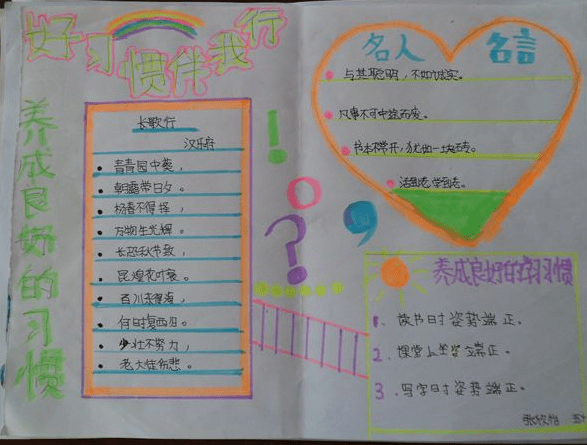 好习惯伴我行
养成良好的习惯
长歌行
汉乐府
青青园中葵，
朝露待日夕。
杨春不得择，
万物生光辉。
长恐秋节致，
昆煌花叶衰。
百川东得海，
何时复西归。
少壮不努力，
老大徒伤悲。
名人 名言
与其聪明，不如诚实。
凡事不可中途而废。
书本不常开，犹如一块砖。
活到老学到老。
养成良好的学习惯
1. 读书时姿势端正。
2. 课堂上坐姿端正。
3. 写字时姿势端正。